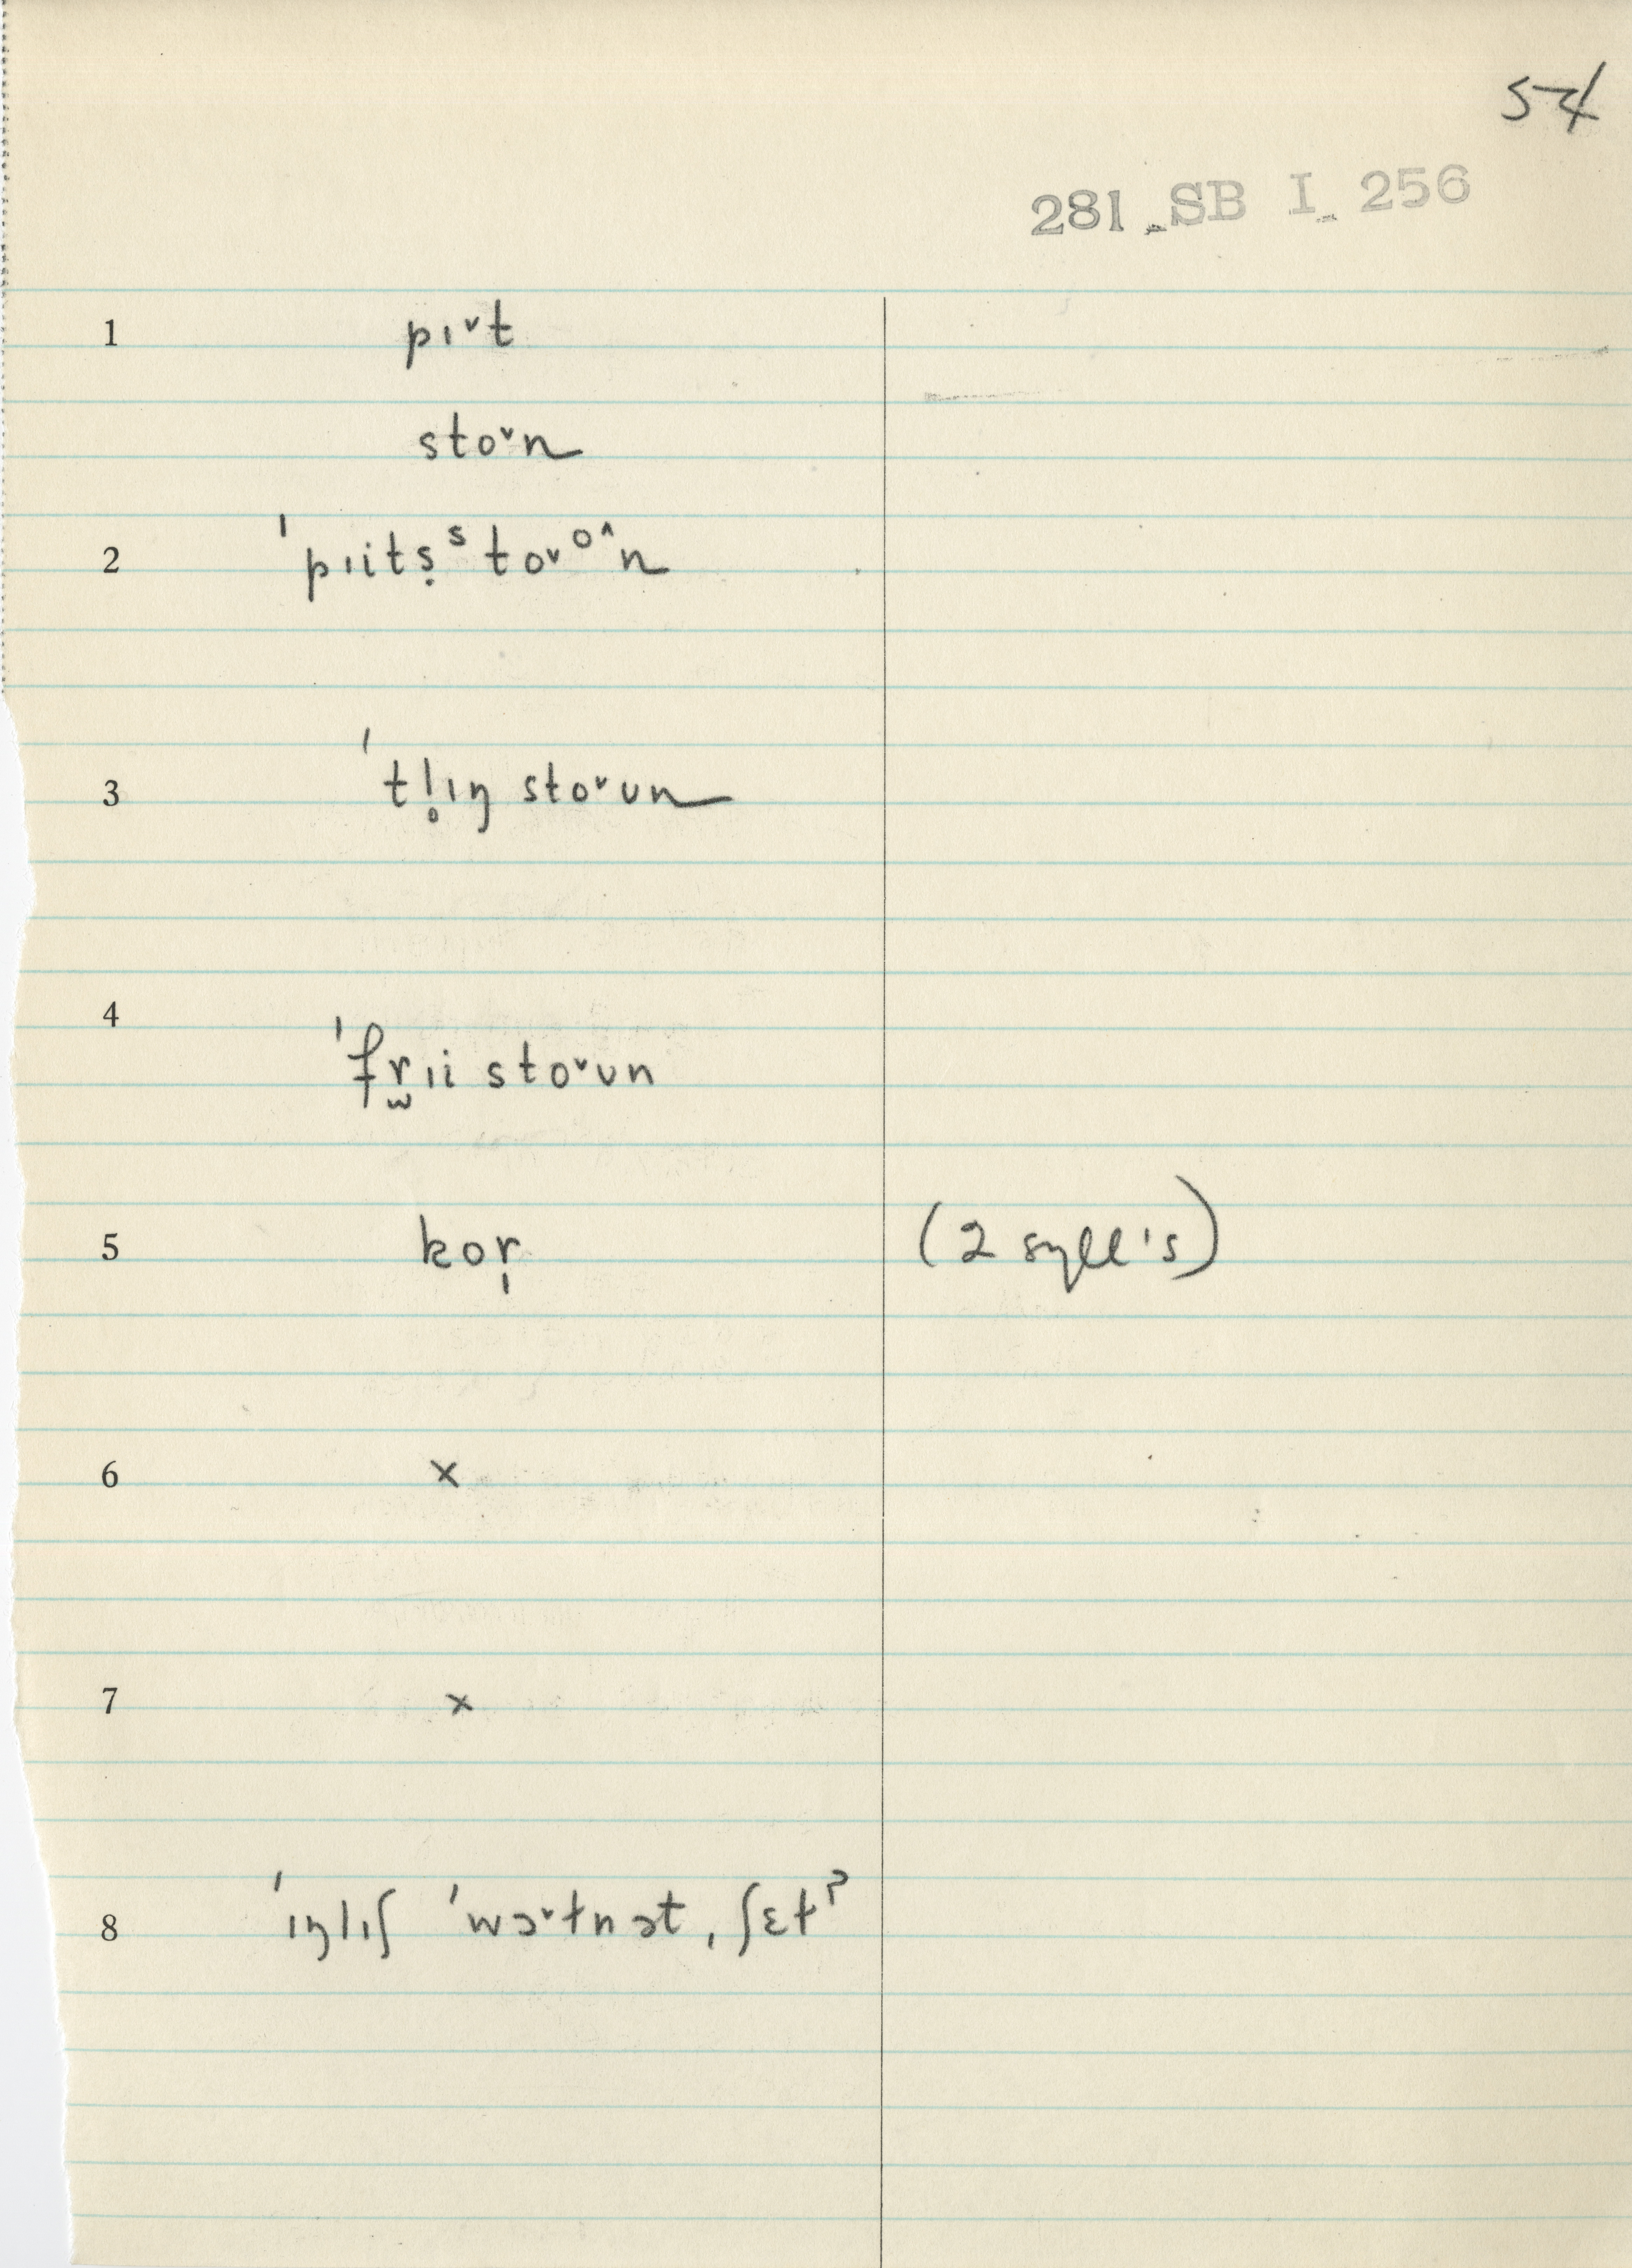 54
281 SB I 256
1 pɪ˅t
sto˅n
2 ˈpɪitṣˢto˅ᵒ^n
3 ˈtl̥ɪŋ sto˅ʊn
4 ˈfr̫ɪi sto˅ʊn
5 kor̩ (2 syll's)
6 ×
7 ×
8 ˈɪŋlɪʃ ˈwɔ˅tnət ˌʃɛtˀ